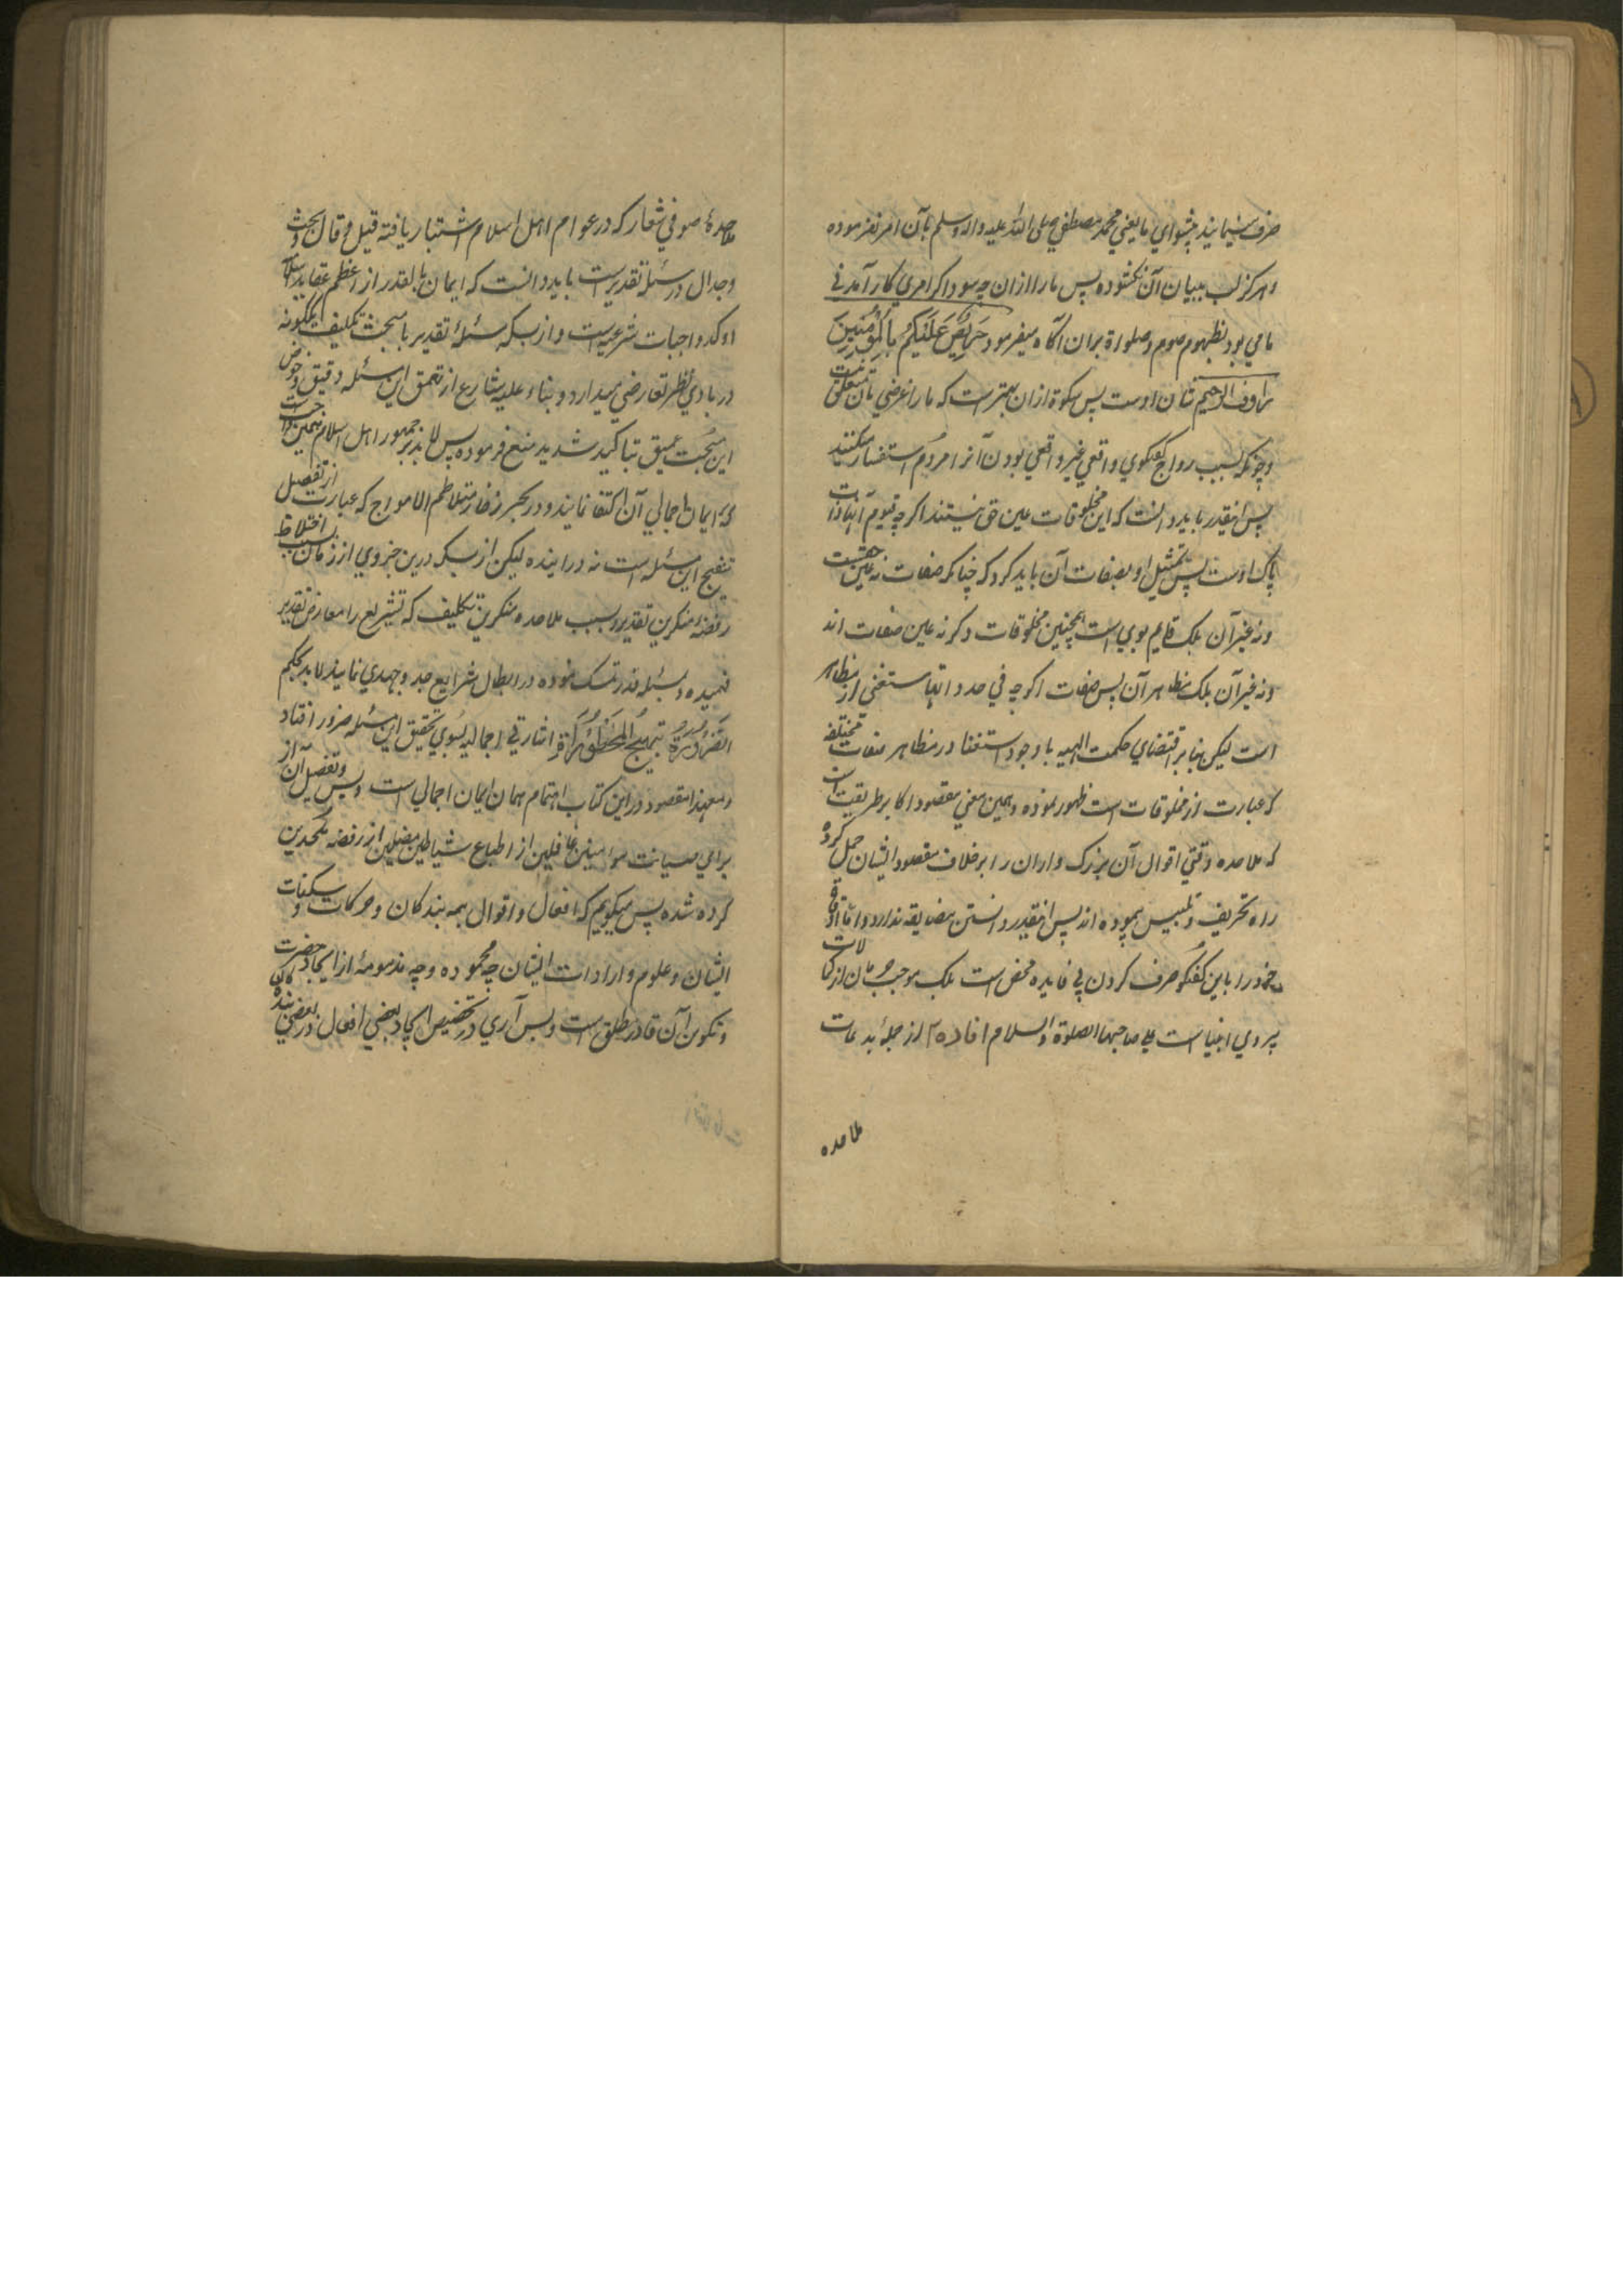 صرف مینمایند پیشوای ما یعنی محمد مصطفی صلی الله علیه واله وسلم بآن امر نفرموده
و هرکز لب ببیان آن نکشوده پس ما را ازان چه سود اکر امری کار آمدنی
ما می بود بظهور صوم وصلوة بران آکاه میفرمود حَرِیْصٌ عَلَیْکُم بِالْمُؤمِنِیْنَ
رؤف الرحیم شان اوست پس سکوة ازان بهتر است که ما را غرضی بآن متعلق نیست
و چونکه بسبب رواج کفتکوی واقعی غیر واقعی بودن آنرا مردم استفسار میکنند
پس اینقدر باید دانست که این مخلوقات عین حق نیستند اکر چه قیوم آنها ذات
پاک اوست پس تمثیل او بصفات آن باید کرد که چنانکه صفات نه عین حقست
و نه غیر آن بلکه قایم بوی است همچنین مخلوقات دکر نه عین صفات اند
و نه غیر آن بلکه مظاهر آن پس صفات اکر چه فی حد ذاتها مستغنی از مظاهر
است لیکن بنا بر اقتضای حکمت الهیه با وجود استغنا در مظاهر صفات مختلفه
که عبارت از مخلوقات است ظهور نموده و همین معنی مقصود اکابر طریقت است
که ملاحده وقتی اقوال آن بزرک واران را بر خلاف مقصود ایشان حمل کرده
راه تحریف و تلبیس پیموده اند پس اینقدر دانستن مضایقه ندارد و اما اوقات
خود را باین کفتکو صرف کردن بی فایده محض است بلکه موجب حرمان از کمالات
پیروی انبیا است علی صاحبها الصلوة والسلام افاده ۲ از جمله بدعات
ملاحده
ملاحدهٔ صوفی شعار که در عوام اهل اسلام اشتهار یافته قیل و قال و بحث
و جدال در مسئله تقدیر است باید دانست که ایمان بالقدر از اعظم عقاید اسلام
او کد واجبات شرعیه است و از بسکه مسئلهٔ تقدیر با مبحث تکلیف یکگونه
در بادی نظر تعارضی میدارد و بناء علیه شارع از تعمق این مسئله دقیق و خوض
این مبحث عمیق بتاکید شدید منع فرموده پس لا بد بر جمهور اهل اسلام همین واجب است
که ایمان اجمالی آن اکتفا نمایند و در بحر زخار متلاطم الامواج که عبارت از تفصیل
تنقیح این مسئله است نه در آینده لیکن از بسکه درین جزوی از زمان بسبب اختلاط
رفضهٔ منکرین تقدیر و بسبب ملاحده منکرین تکلیف که تشریع را معارض تقدیر
فهمیده و بمسئله قدر تمسک نموده در ابطال شرایع جد و جهدی نمایند لا بد بحکم
الضَرُوْرَةُ تُبِیْحُ الْمَحْظُوْرَةَ اشارتی اجمالیه بسوی تحقیق این مسئله ضرور افتاد
و معهذا مقصود در این کتاب اهتمام همان ایمان اجمالی است و بس و تفصیل آن از
برای صیانت مؤمنین غافلین از اطباع شیاطین مضلین از رفضه ملحدین
کرده شده پس میکویم که افعال و اقوال همه بندکان و حرکات و سکنات
ایشان و علوم و ارادات ایشان چه محموده و چه مذمومهٔ از ایجاد حضرت
و تکوین آن قادر مطلق است و بس آری در تخصیص ایجاد بعضی افعال در بعضی بنده